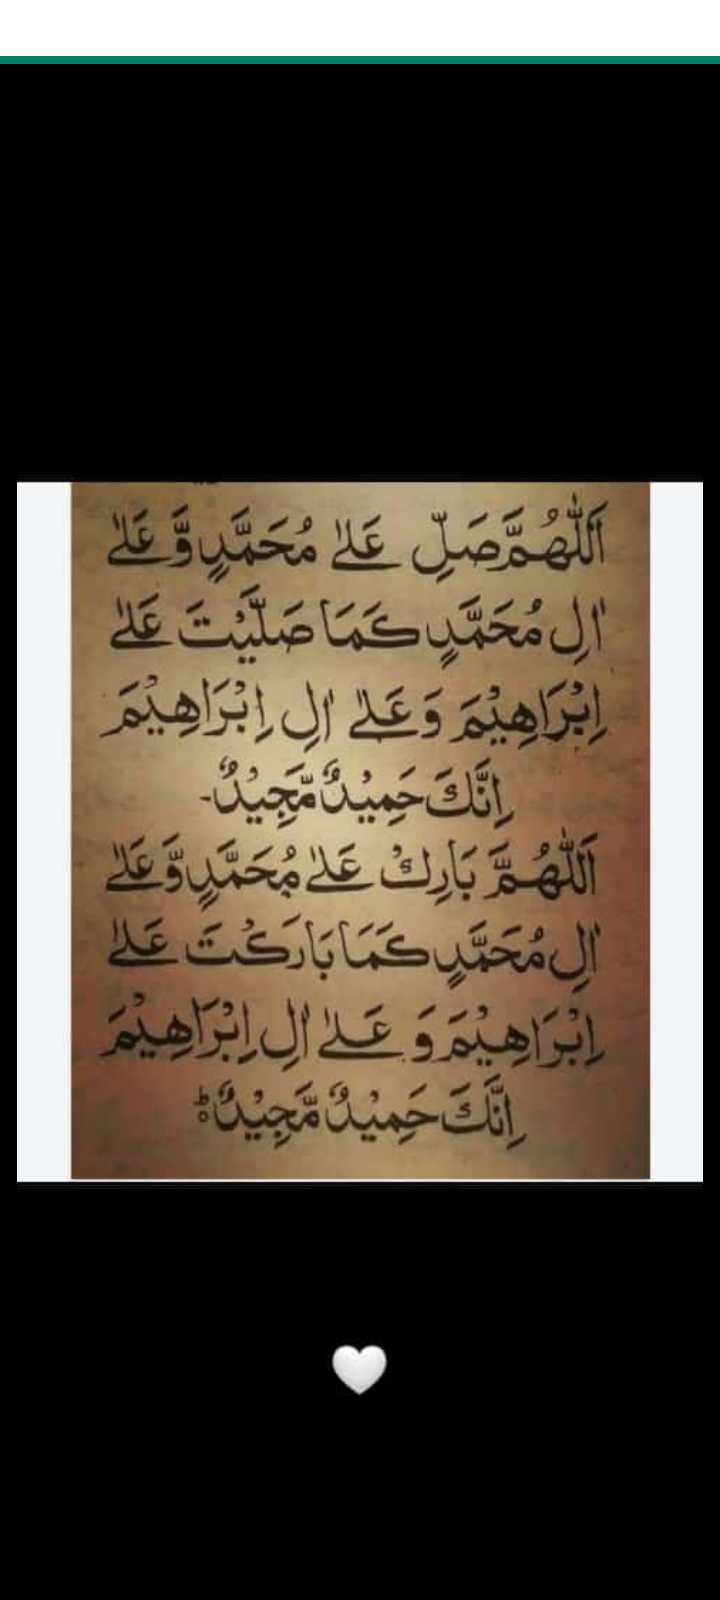 اَللّٰهُمَّ صَلِّ عَلٰى مُحَمَّدٍ وَّعَلٰى
اٰلِ مُحَمَّدٍ كَمَا صَلَّيْتَ عَلٰى
اِبْرَاهِيْمَ وَعَلٰى اٰلِ اِبْرَاهِيْمَ
اِنَّكَ حَمِيْدٌ مَّجِيْدٌ-
اَللّٰهُمَّ بَارِكْ عَلٰى مُحَمَّدٍ وَّعَلٰى
اٰلِ مُحَمَّدٍ كَمَا بَارَكْتَ عَلٰى
اِبْرَاهِيْمَ وَ عَلٰى اٰلِ اِبْرَاهِيْمَ
اِنَّكَ حَمِيْدٌ مَّجِيْدٌ ؕ